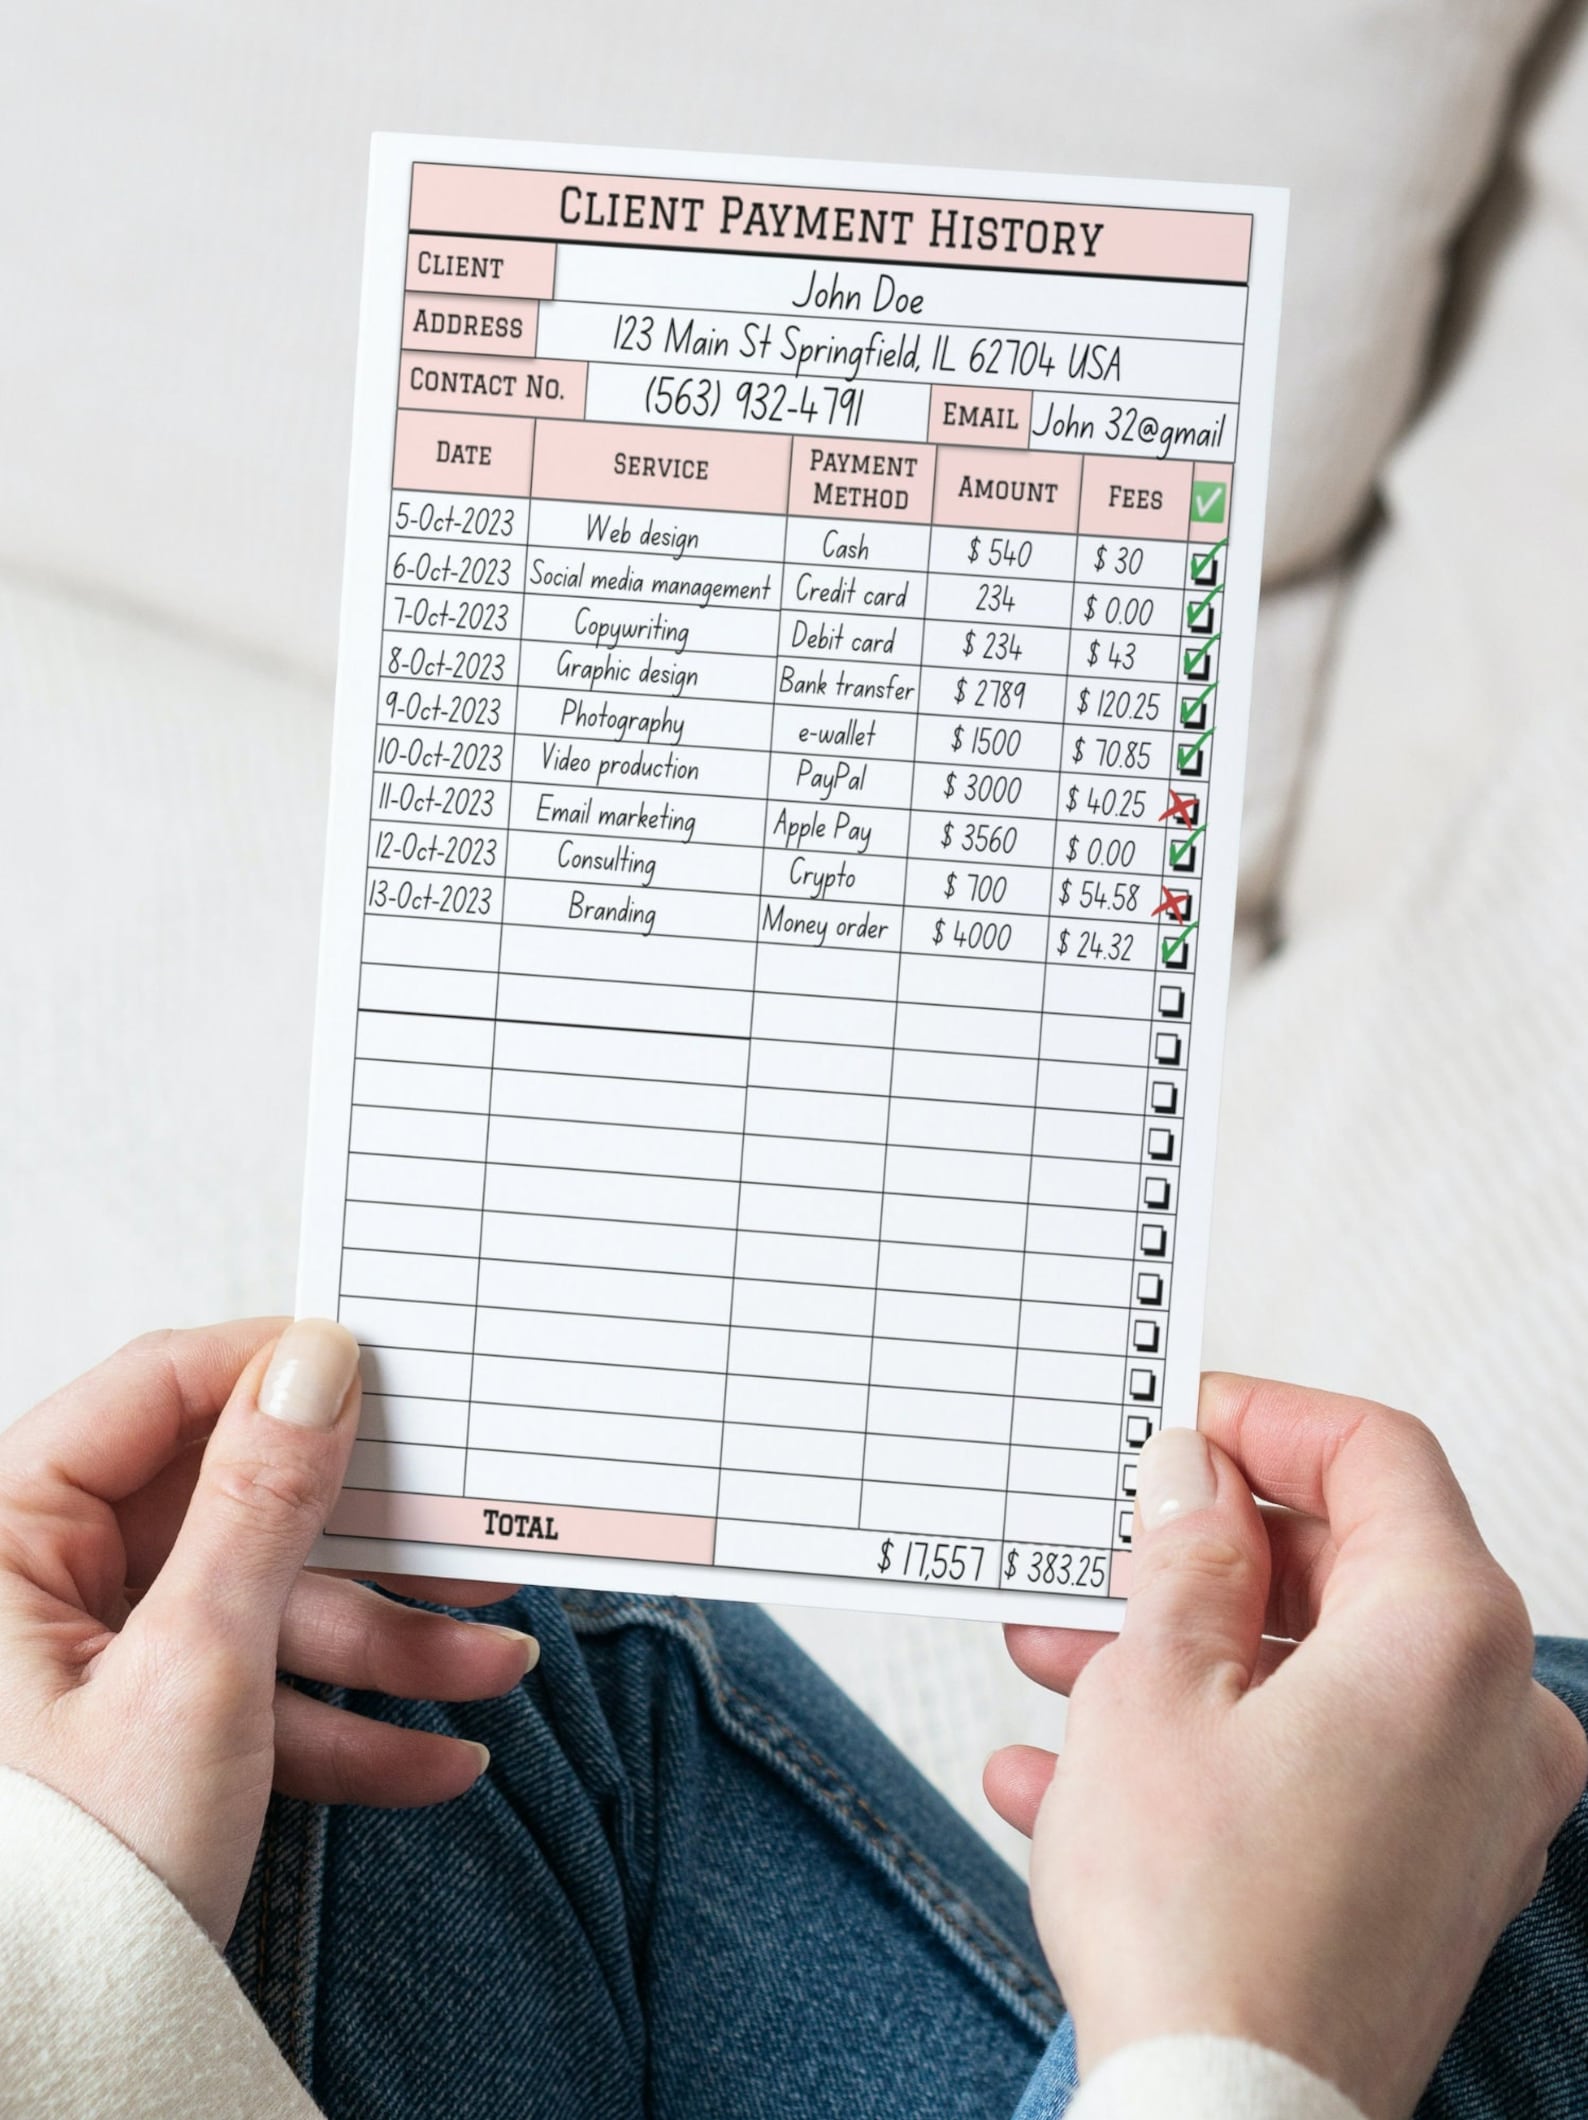 CLIENT PAYMENT HISTORY
CLIENT John Doe
ADDRESS 123 Main St Springfield, IL 62704 USA
CONTACT NO. (563) 932-4791 EMAIL John 32@gmail
DATE SERVICE PAYMENT METHOD AMOUNT FEES ✅
5-Oct-2023 Web design Cash $ 540 $ 30
6-Oct-2023 Social media management Credit card 234 $ 0.00
7-Oct-2023 Copywriting Debit card $ 234 $ 43
8-Oct-2023 Graphic design Bank transfer $ 2789 $ 120.25
9-Oct-2023 Photography e-wallet $ 1500 $ 70.85
10-Oct-2023 Video production PayPal $ 3000 $ 40.25
11-Oct-2023 Email marketing Apple Pay $ 3560 $ 0.00
12-Oct-2023 Consulting Crypto $ 700 $ 54.58
13-Oct-2023 Branding Money order $ 4000 $ 24.32
TOTAL $ 17,557 $ 383.25